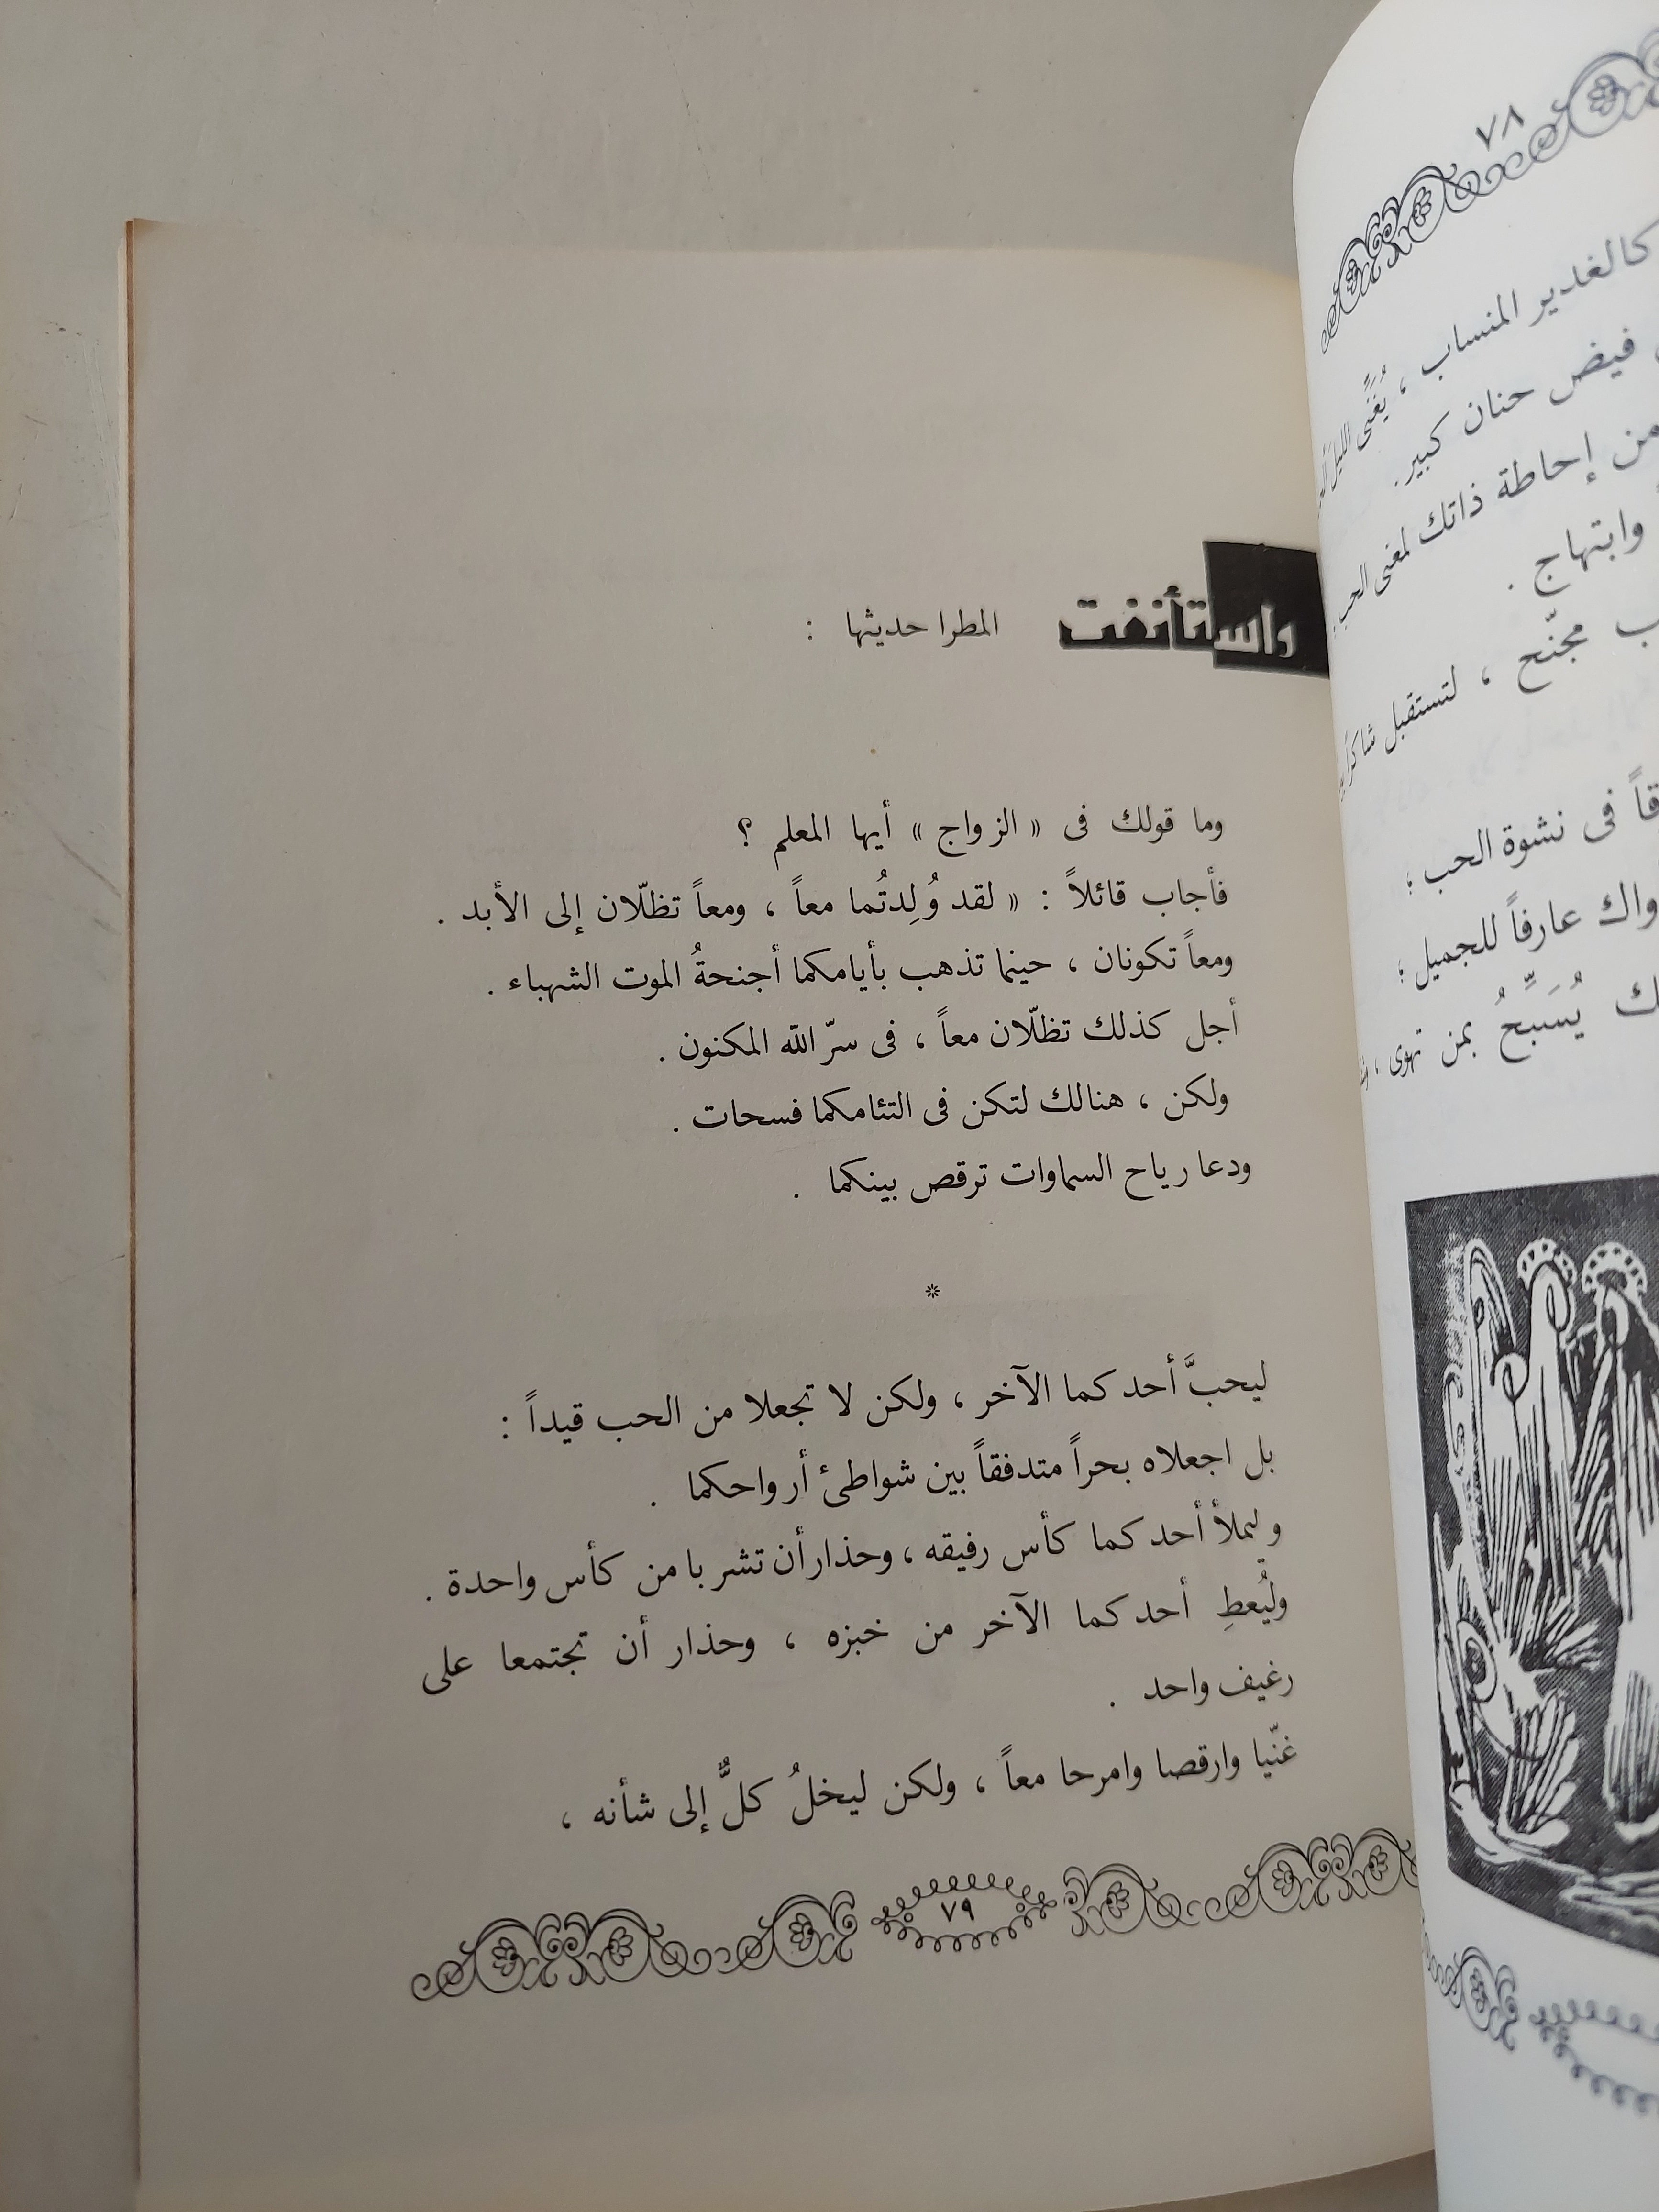 ٧٨
كالغدير المنساب ، يُغَنِّى الليل
فيض حنان كبير.
من إحاطة ذاتك لمعنى الحب .
وابتهاج .
مجنّح ، لتستقبل شاكراً
فى نشوة الحب ؛
عارفاً للجميل ؛
يُسَبِّحُ بمن تهوى ،
واستأنفت المطرا حديثها :
وما قولك فى « الزواج » أيها المعلم ؟
فأجاب قائلاً : « لقد وُلِدتُما معاً ، ومعاً تظلّان إلى الأبد .
ومعاً تكونان ، حينما تذهب بأيامكما أجنحةُ الموت الشهباء .
أجل كذلك تظلّان معاً ، فى سرّ الله المكنون .
ولكن ، هنالك لتكن فى التئامكما فسحات .
ودعا رياح السماوات ترقص بينكما .
*
ليحبَّ أحدكما الآخر ، ولكن لا تجعلا من الحب قيداً :
بل اجعلاه بحراً متدفقاً بين شواطئ أرواحكما .
وليملأ أحدكما كأس رفيقه ، وحذار أن تشربا من كأس واحدة .
وليُعطِ أحدكما الآخر من خبزه ، وحذار أن تجتمعا على
رغيف واحد .
غنّيا وارقصا وامرحا معاً ، ولكن ليخلُ كلٌّ إلى شأنه ،
٧٩